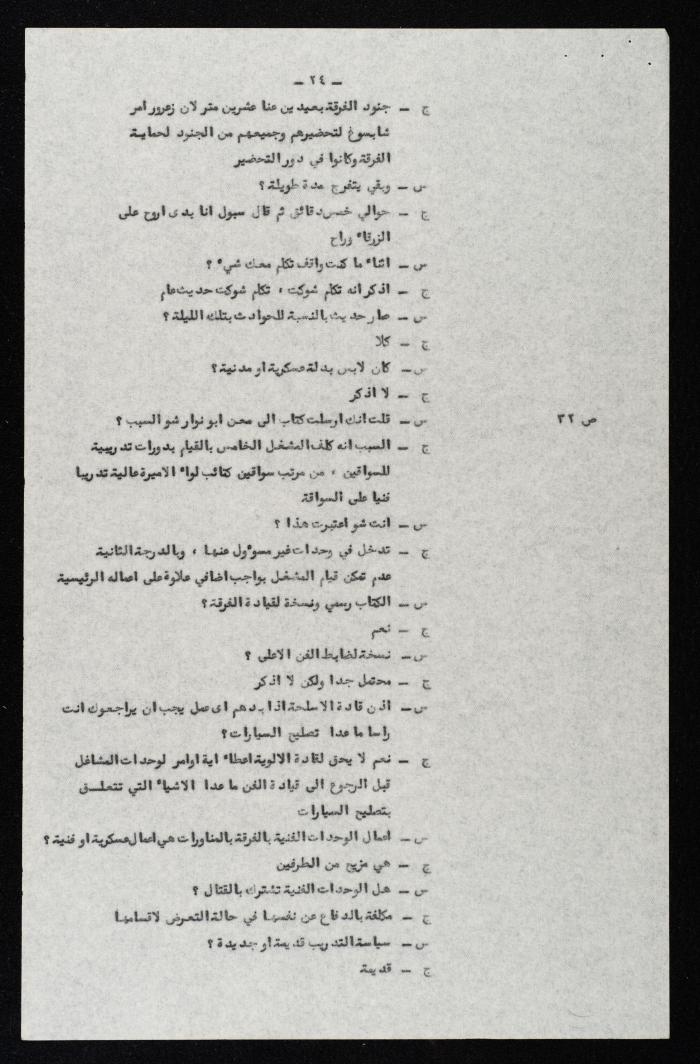 ـ ٢٤ ـ
ج ـ جنود الفرقة بعيدين عنا عشرين متر لان زعرور امر
شابسوغ لتحضيرهم وجميعهم من الجنود لحماية
الفرقة وكانوا في دور التحضير
س ـ وبقي يتفرج مدة طويلة ؟
ج ـ حوالي خمس دقائق ثم قال سبول انا بدى اروح على
الزرقاء وراح
س ـ اثناء ما كنت واقف تكلم معك شيء ؟
ج ـ اذكر انه تكلم شوكت ، تكلم شوكت حديث عام
س ـ صار حديث بالنسبة للحوادث بتلك الليلة ؟
ج ـ كلا
س ـ كان لابس بدلة عسكرية او مدنية ؟
ج ـ لا اذكر
ص ٣٢ س ـ قلت انك ارسلت كتاب الى معن ابو نوار شو السبب ؟
ج ـ السبب انه كلف المشغل الخامس بالقيام بدورات تدريبية
للسواقين ، من مرتب سواقين كتائب لواء الاميرة عالية تدريبا
فنيا على السواقة
س ـ انت شو اعتبرت هذا ؟
ج ـ تدخل في وحدات غير مسوءول عنها ، وبالدرجة الثانية
عدم تمكن قيام المشغل بواجب اضافي علاوة على اعماله الرئيسية
س ـ الكتاب رسمي ونسخة لقيادة الفرقة ؟
ج ـ نعم
س ـ نسخة لضابط الفن الاعلى ؟
ج ـ محتمل جدا ولكن لا اذكر
س ـ اذن قادة الاسلحة اذا بدهم اى عمل يجب ان يراجعوك انت
راسا ما عدا تصليح السيارات ؟
ج ـ نعم لا يحق لقادة الالوية اعطاء اية اوامر لوحدات المشاغل
قبل الرجوع الى قيادة الفن ما عدا الاشياء التي تتعلق
بتصليح السيارات
س ـ اعمال الوحدات الفنية بالفرقة بالمناورات هي اعمال عسكرية او فنية ؟
ج ـ هي مزيج من الطرفين
س ـ هل الوحدات الفنية تشترك بالقتال ؟
ج ـ مكلفة بالدفاع عن نفسها في حالة التعرض لاقسامها
س ـ سياسة التدريب قديمة او جديدة ؟
ج ـ قديمة